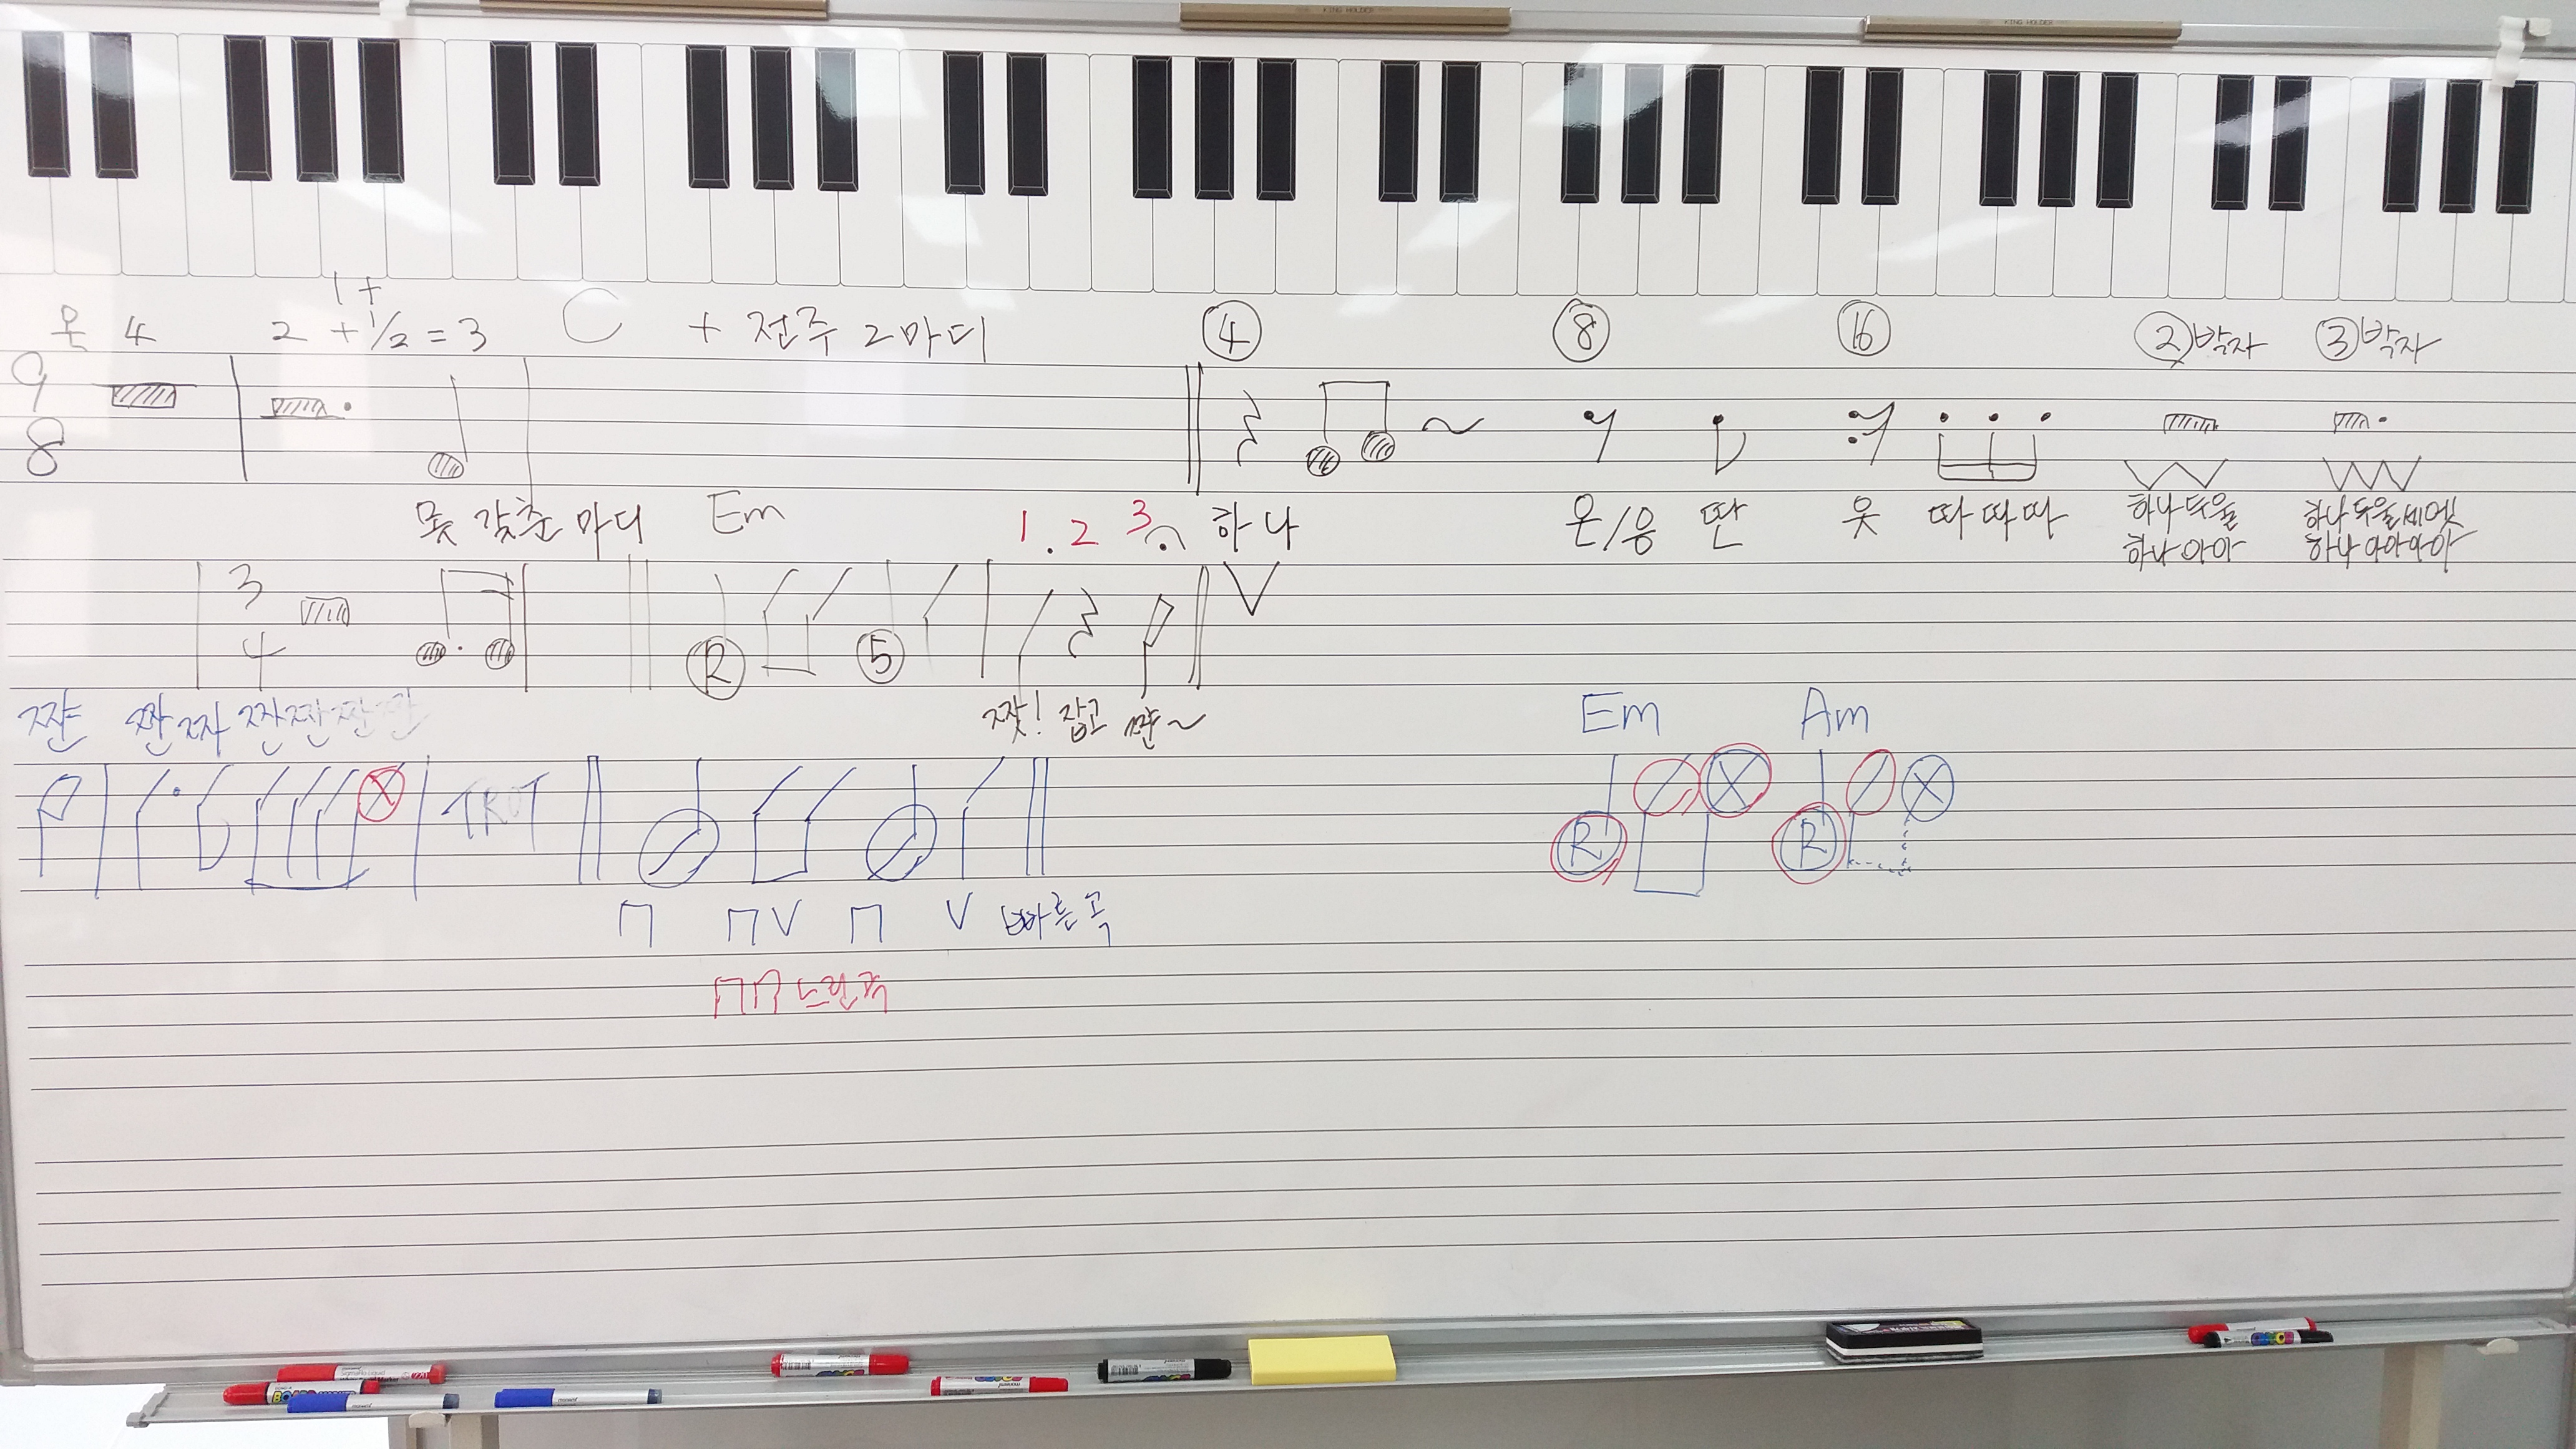 1 +
온 4 2 + 1/2 = 3 C + 전주 2마디 ④ ⑧ ⑯ ②박자 ③박자
9
8
못 갖춘 마디 Em 1 . 2 3 하나 온/응 딴 읏 따따따 하나 두울 하나 두울 세엣
하나 아아 하나 아아아아
3
4 R 5 V
쨘 짠 짜 짠짠짠짠 짯! 잡고 쨘~ Em Am
TROT R R
V V 빠른 곡
느린곡